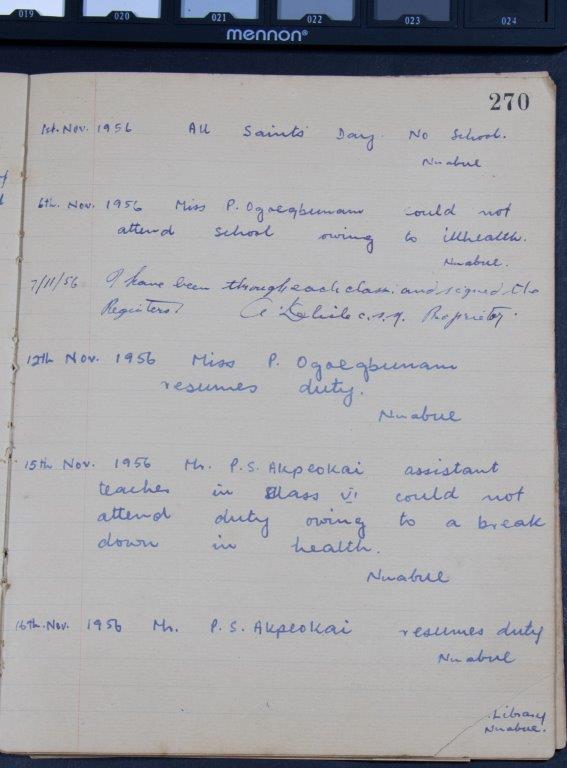 019 020 021 022 023 024
mennon®
270
1st. Nov. 1956 All Saints' Day. No School.
Nwabue
6th. Nov. 1956 Miss P. Ogoegbunam could not
attend school owing to illhealth.
Nwabue.
7/11/56 I have been through each class and signed the
Registers. c.s.sp. Proprietor.
12th Nov. 1956 Miss P. Ogoegbunam
resumes duty.
Nwabue
15th Nov. 1956 Mr. P.S. Akpeokai assistant
teacher in Class VI could not
attend duty owing to a break
down in health.
Nwabue
16th. Nov. 1956 Mr. P.S. Akpeokai resumes duty
Nwabue
Library
Nwabue.